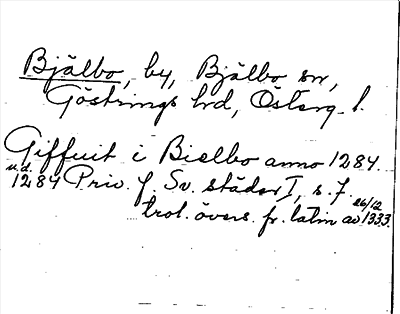 Bjälbo, by, Bjälbo sn,
Göstrings hd, Österg. l.
Giffuit i Bielbo anno 1284.
u.d.
1284 Priv. f. Sv. städer I, s. 7.
trol. övers. fr. latin av 26/12 1333.